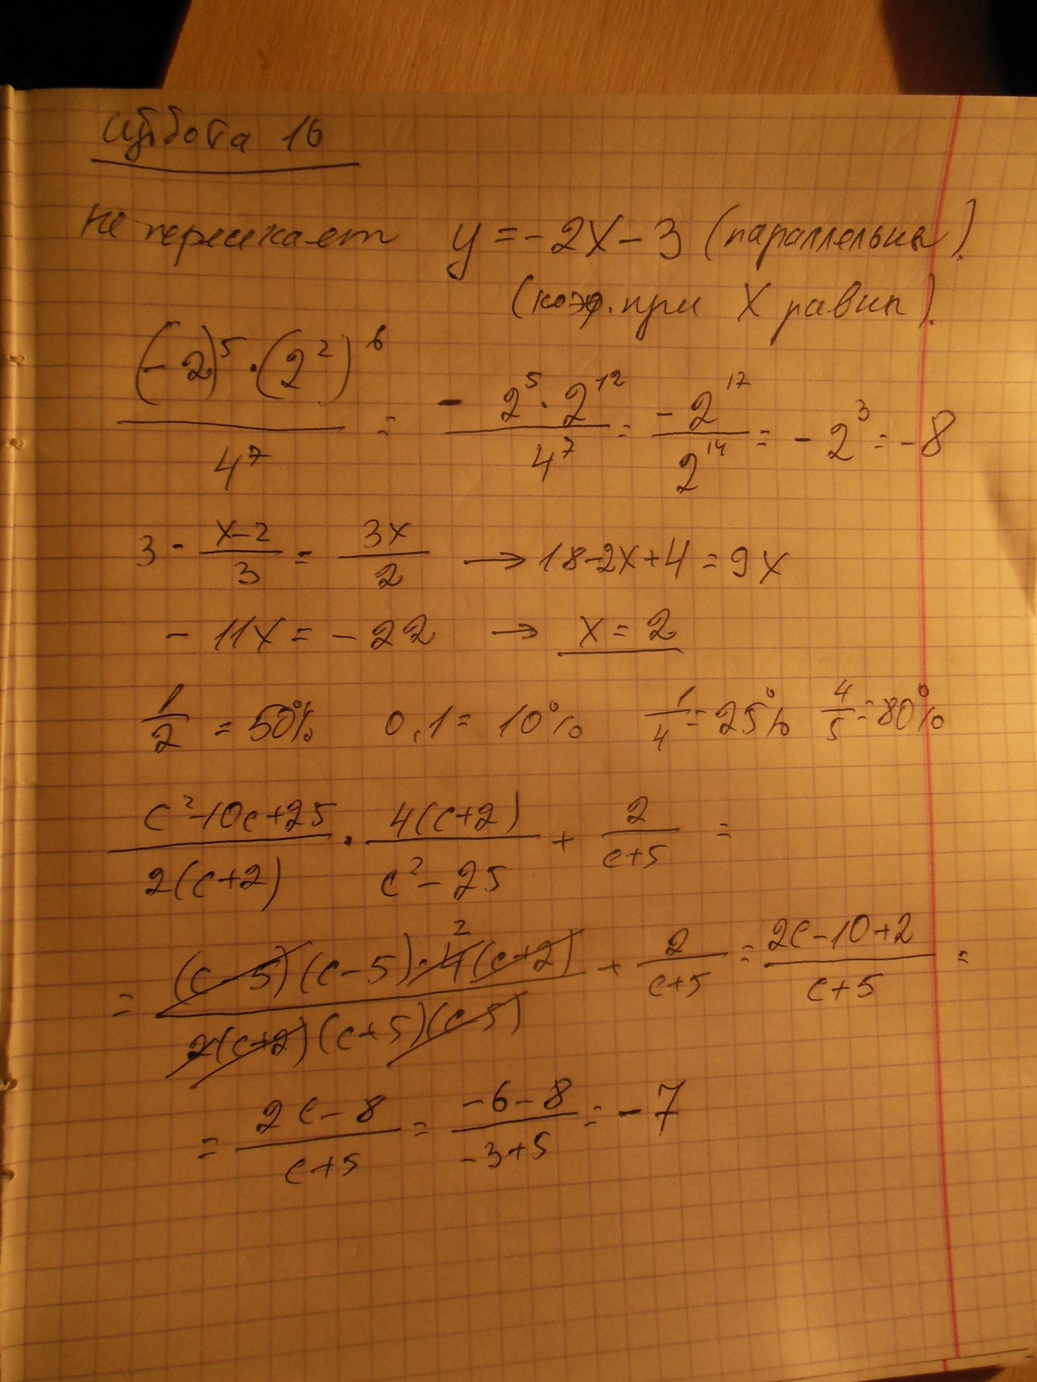 Суббота 16
не пересекает y = -2x - 3 (параллельны)
(коэф. при x равны)
(-2)^5 · (2^2)^6 / 4^7 = - 2^5 · 2^12 / 4^7 = -2^17 / 2^14 = -2^3 = -8
3 - (x-2)/3 = 3x/2 → 18-2x+4 = 9x
-11x = -22 → x = 2
1/2 = 50% 0,1 = 10% 1/4 = 25% 4/5 = 80%
(c^2-10c+25)/(2(c+2)) · 4(c+2)/(c^2-25) + 2/(c+5) =
= (c-5)(c-5)·4(c+2) 2 / 2(c+2)(c+5)(c-5) + 2/(c+5) = (2c-10+2)/(c+5) =
= (2c-8)/(c+5) = (-6-8)/(-3+5) = -7